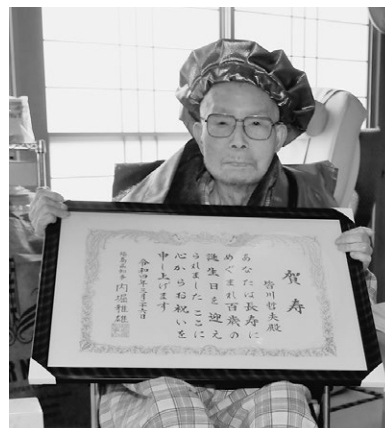 賀寿
皆川哲夫殿
あなたは長寿に
めぐまれ百歳の
誕生日を迎え
られましたここに
心からお祝いを
申し上げます
令和四年三月二十六日
福島県知事 内堀雅雄